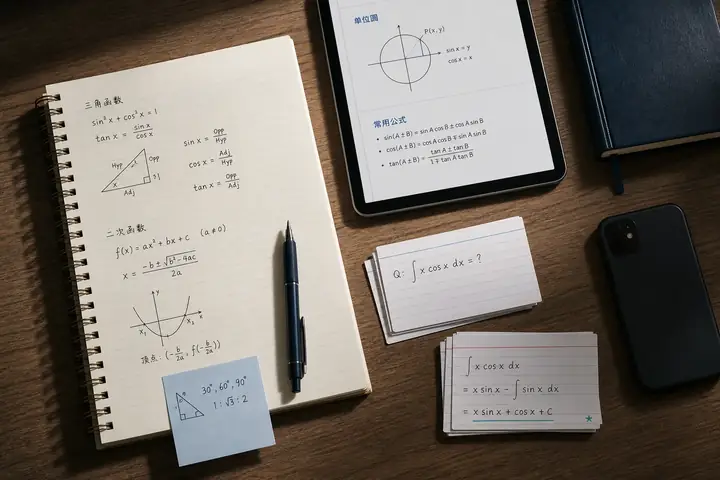 三角函数
sin² x + cos² x = 1
tan x = sin x / cos x
Hyp
Opp
x
Adj
sin x = Opp / Hyp
cos x = Adj / Hyp
tan x = Opp / Adj
二次函数
f(x) = ax² + bx + c (a ≠ 0)
x = -b ± √b² - 4ac / 2a
y
x
x₁
x₂
顶点: (-b/2a, f(-b/2a))
30°, 60°, 90°
1 : √3 : 2
单位圆
P(x, y)
sin x = y
cos x = x
常用公式
• sin(A ± B) = sin A cos B ± cos A sin B
• cos(A ± B) = cos A cos B ∓ sin A sin B
• tan(A ± B) = tan A ± tan B / 1 ∓ tan A tan B
Q: ∫ x cos x dx = ?
∫ x cos x dx
= x sin x - ∫ sin x dx
= x sin x + cos x + C